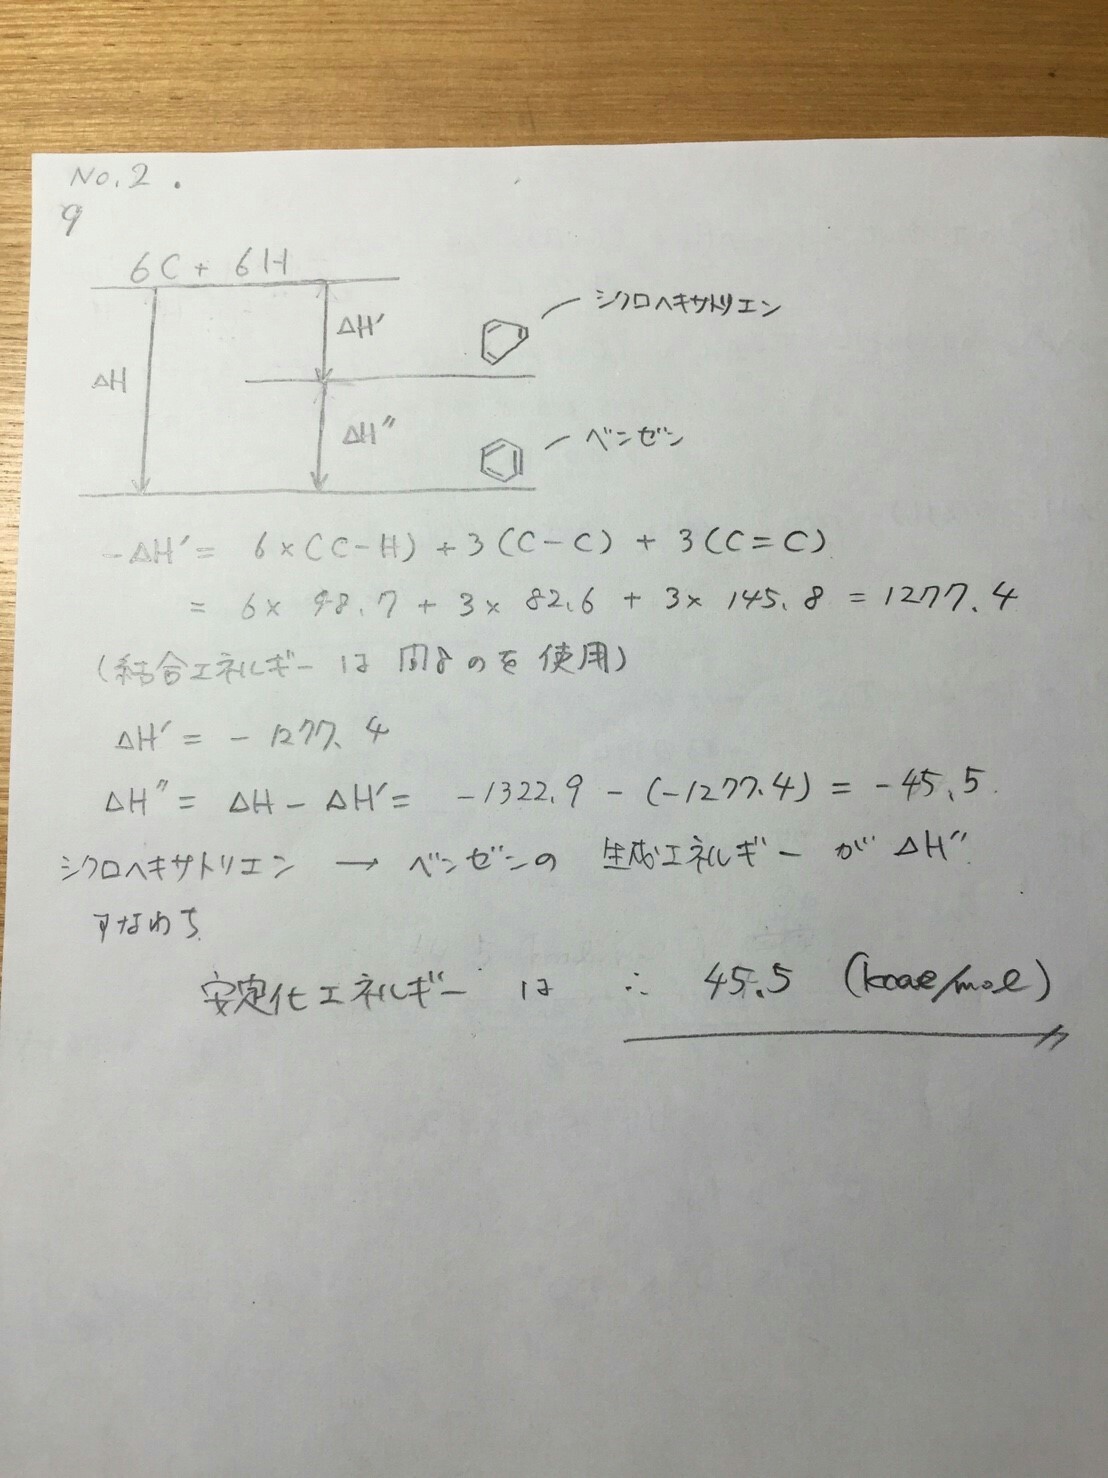 No.2.
9
6C + 6H
シクロヘキサトリエン
ΔH'
ΔH
ΔH''
ベンゼン
-ΔH' = 6×(C-H) + 3(C-C) + 3(C=C)
= 6× 98.7 + 3× 82.6 + 3× 145.8 = 1277.4
(結合エネルギーは問8のを使用)
ΔH' = -1277.4
ΔH'' = ΔH - ΔH' = -1322.9 - (-1277.4) = -45.5.
シクロヘキサトリエン → ベンゼンの 生成エネルギーが ΔH''
すなわち
安定化エネルギーは ∴ 45.5 (kcal/mol)